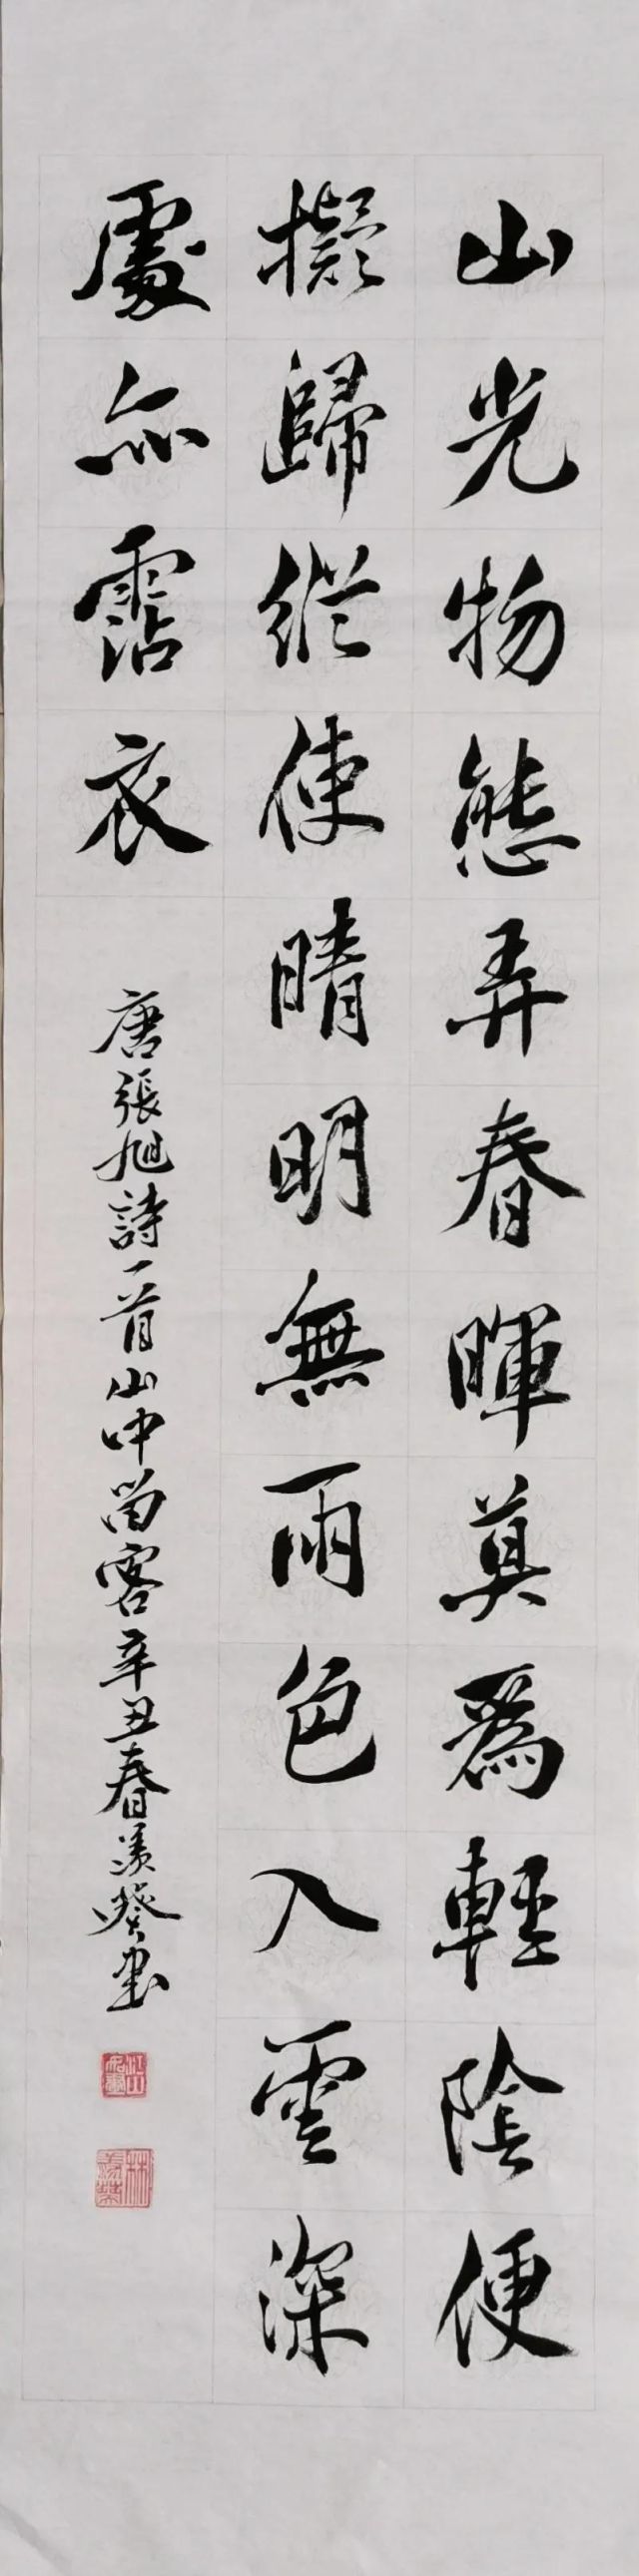 山光物態弄春暉莫爲輕陰便
擬歸縱使晴明無雨色入雲深
處亦霑衣
唐張旭詩一首山中留客辛丑春羨葵書
江山如畫